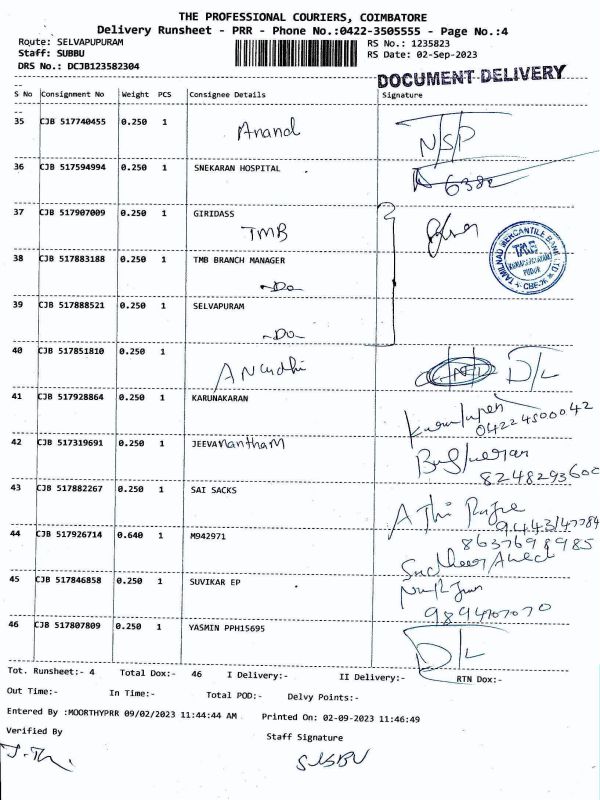 THE PROFESSIONAL COURIERS, COIMBATORE
Delivery Runsheet - PRR - Phone No.:0422-3505555 - Page No.:4
Route: SELVAPUPURAM RS No.: 1235823
Staff: SUBBU RS Date: 02-Sep-2023
DRS No.: DCJB123582304
DOCUMENT DELIVERY
S No Consignment No Weight PCS Consignee Details Signature
35 CJB 517740455 0.250 1 Anand
NSP
36 CJB 517594994 0.250 1 SNEKARAN HOSPITAL
6382
37 CJB 517907009 0.250 1 GIRIDASS
TMB
TAMILNAD MERCANTILE BANK LTD
38 CJB 517883188 0.250 1 TMB BRANCH MANAGER
-Do-
39 CJB 517888521 0.250 1 SELVAPURAM
-Do-
40 CJB 517851810 0.250 1
D/L
41 CJB 517928864 0.250 1 KARUNAKARAN
04224500042
42 CJB 517319691 0.250 1 JEEVAnantham
8248293600
43 CJB 517882267 0.250 1 SAI SACKS
44 CJB 517926714 0.640 1 M942971
8637698985
45 CJB 517846858 0.250 1 SUVIKAR EP
46 CJB 517807809 0.250 1 YASMIN PPH15695
D/L
Tot. Runsheet:- 4 Total Dox:- 46 I Delivery:- II Delivery:- RTN Dox:-
Out Time:- In Time:- Total POD:- Delvy Points:-
Entered By :MOORTHYPRR 09/02/2023 11:44:44 AM Printed On: 02-09-2023 11:46:49
Verified By Staff Signature
SUBBU